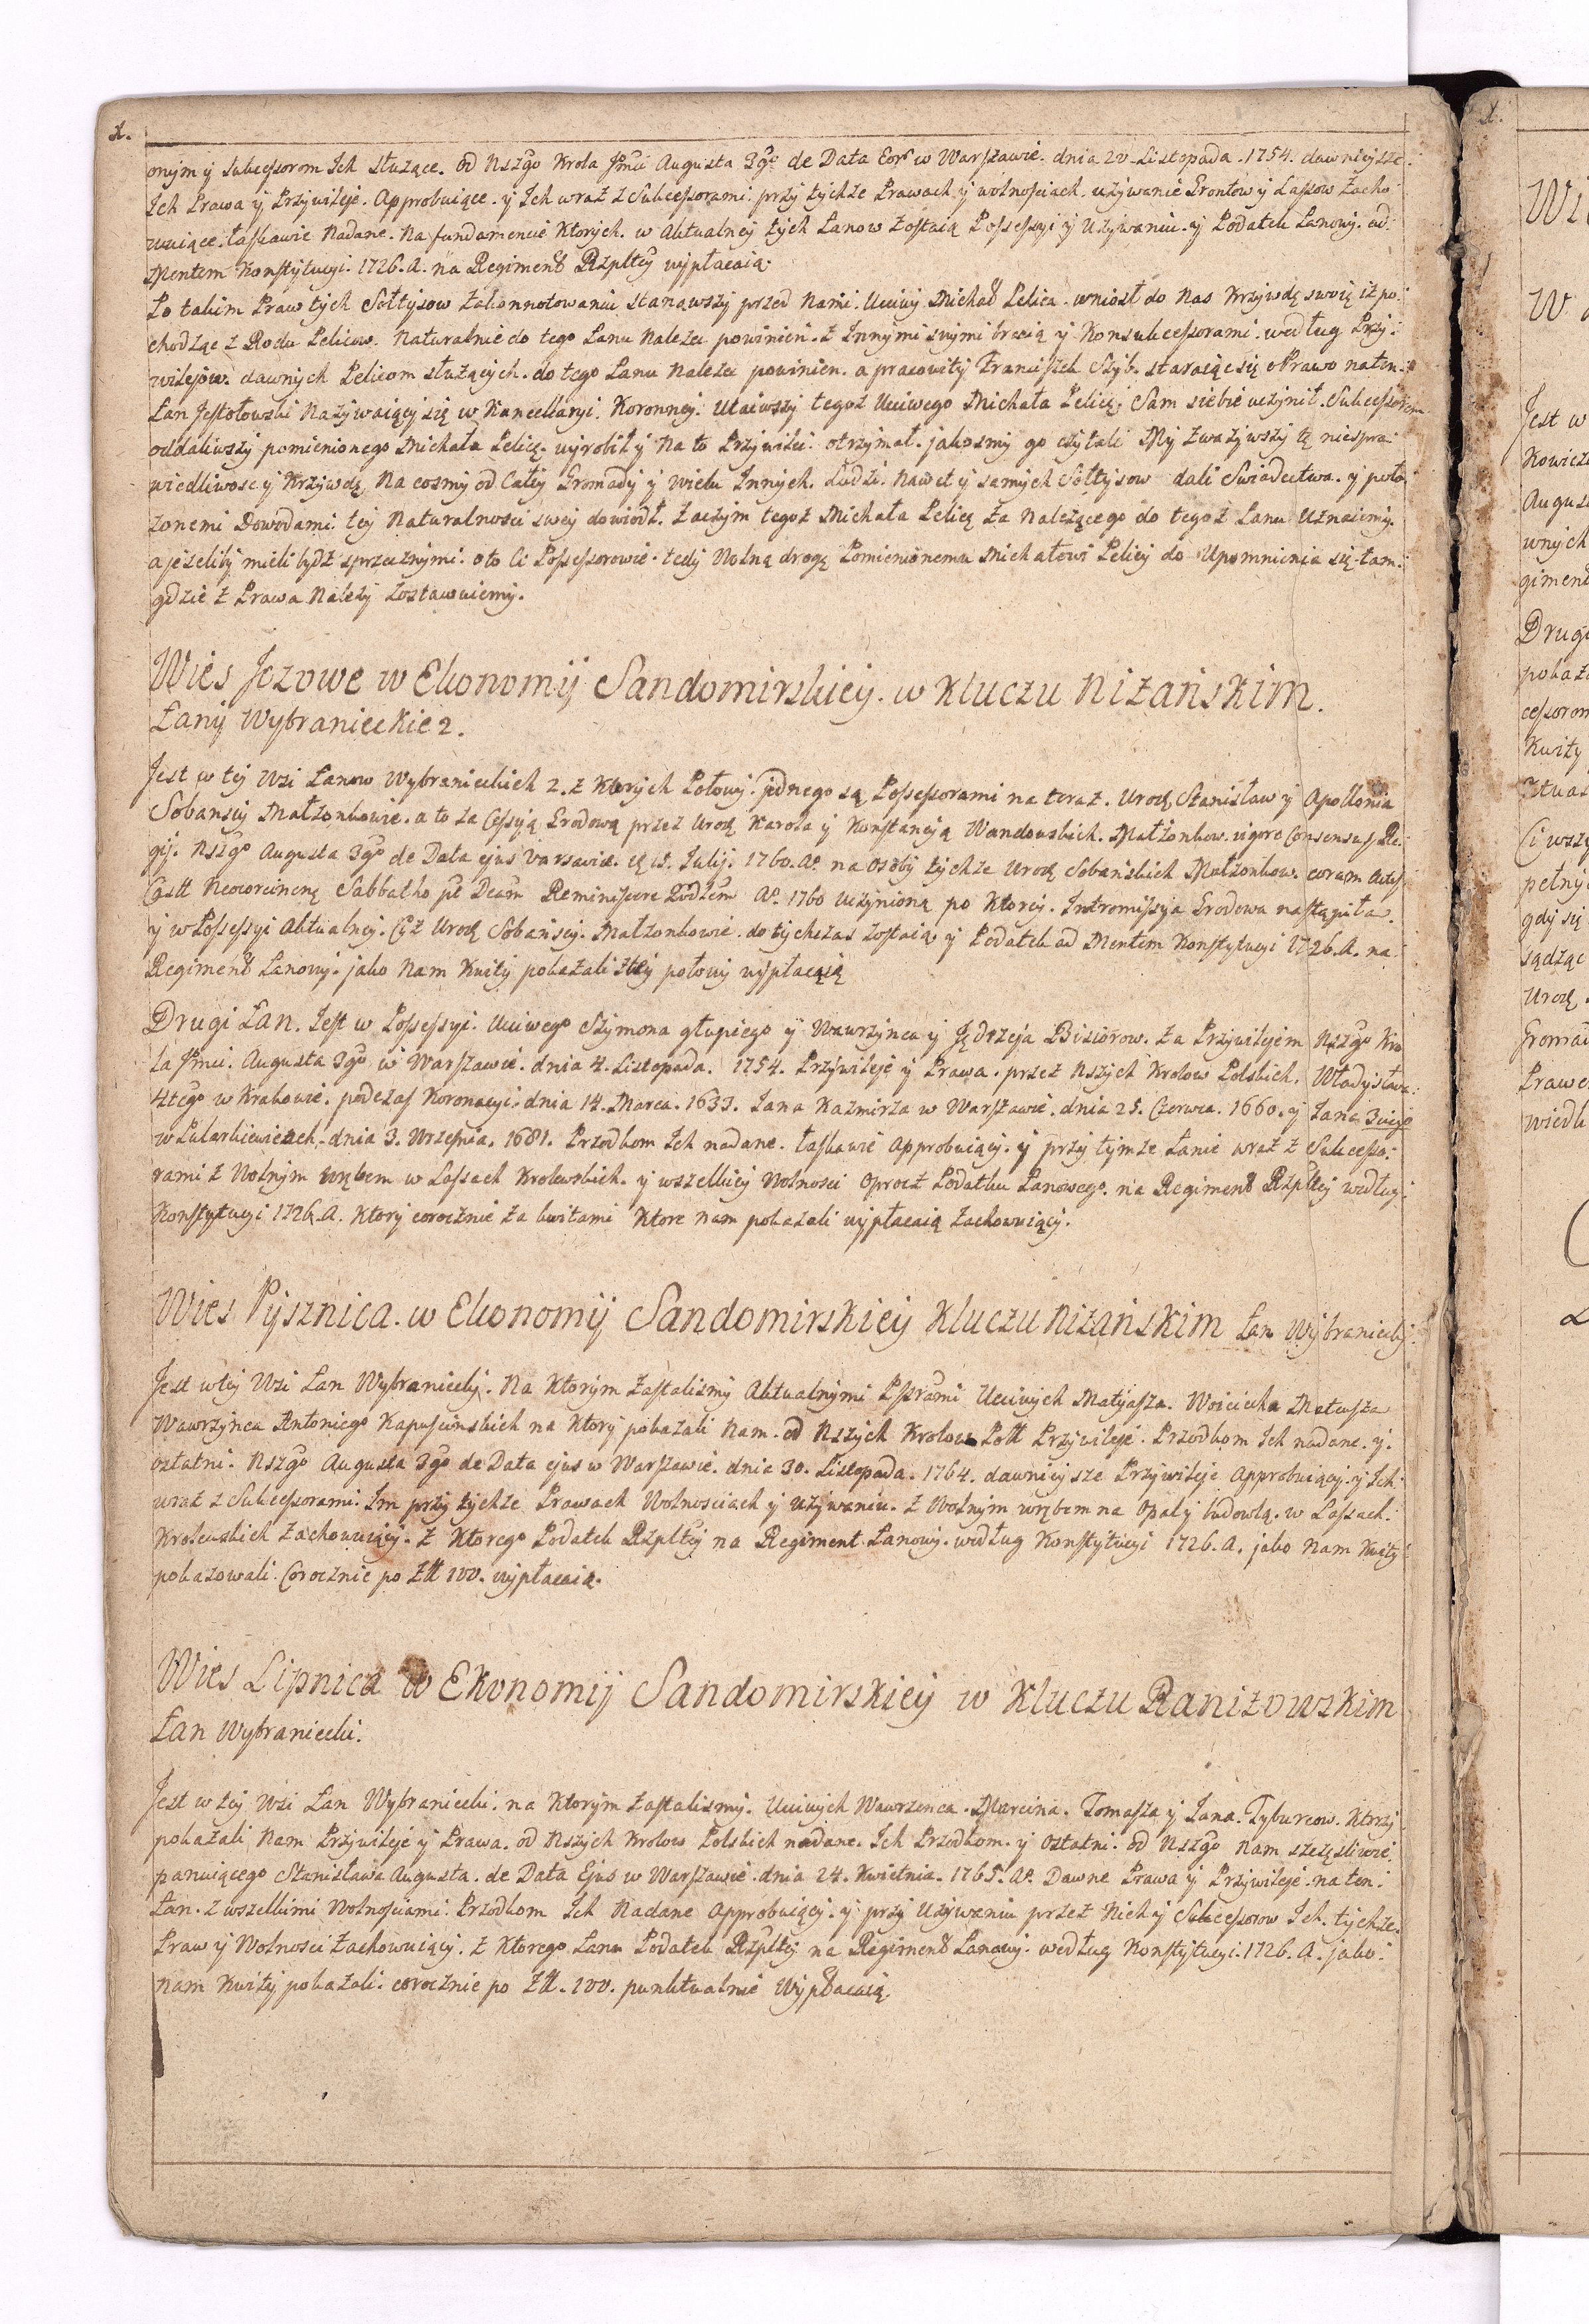 x.
onym y Sukcessorom Ich służące. od Nszgo Krola Jmci Augusta 3go de Data Eor w Warszawie. dnia 20 Listopada. 1754. dawniejsze
Ich Prawa y Przywileje. Approbuiące. y Ich wraz z Sukcessorami przy tychże Prawach y wolnosciach. używanie Grontow y Lassow zacho-
wuiące. łaskawie nadane. Na fundamencie Ktorych. w Aktualney tych Lanow zostaią Possessyi y Używaniu. y Podatek Lanowy. ad
Mentem Konstytucyi. 1726. A. na Regiment Rzpltey wypłacaią.
Po takim Praw tych Sołtysow zakonnotowaniu stanąwszy przed Nami. Uciwy Michał Pelica. wniosł do Nas Krzywdę swoię iż po-
chodząc z Rodu Pelicow. Naturalnie do tego Lanu Należec powinien. z Innymi swymi bracią y Konsukcessorami. według Przy-
wilejow. dawnych Pelicom służących. do tego Lanu Należec powinien. a pracowity Franciszek Szyb. staraiąc się o Prawo na ten
Lan Jestołowski Nazywaiący się w Kancellaryi. Koronney. Utaiwszy tegoż Uciwego Michała Pelicę. Sam siebie uczynił Sukcessorem
oddaliwszy pomienionego Michała Pelicę. wyrobił y na to Przywiley otrzymał. jakosmy go czytali My zważywszy tę niespra-
wiedliwosc y Krzywdę, Na cosmy od Całey Gromady y wielu Innych. Ludzi. Nawet y samych Sołtysow dali Swiadectwa. y poło-
żonemi Dowodami tey Naturalnosci swey dowiodł. Zaczym tegoż Michała Pelicę za Należącego do tegoż Lanu Uznaiemy.
a jeżeliby mieli bydz sprzecznymi. o to Ci Possessorowie. tedy Wolną drogę Pomienionemu Michałowi Pelicy do Upomnienia się tam
gdzie z Prawa Należy zostawuiemy.
Wies Jezowe w Ekonomij Sandomirskiey. w Kluczu Niżańskim.
Łany Wybranieckie 2.
Jest w tey Wsi Łanow Wybranieckich 2. z Ktorych Połowy. jednego są Possessorami na teraz. Urodz Stanisław y Apollonia
Sobanscy Małżonkowie. a to za Cessyą Grodową przez Urodz Karola y Konstancyą Wandowskich. Małżonkow. vigore Consensus Re-
gij. Nszgo Augusta 3go de Data ejus Varsaviæ. 15. Julij. 1760. Ao. na Osoby tychże Urodz Sobańskich Małżonkow. coram Actis
Castr Neocorcinen Sabbatho pt Dcam Reminiscere Ao. 1760 uczynioną po Ktorey. Intromissya Grodowa nastąpiła.
y w Possessyi Aktualney. Ciż Urodz Sobańscy. Małżonkowie. do tychczas zostaią y Podatek ad Mentem Konstytucyi 1726. A. na
Regiment Lanowy. jako Nam Kwity pokazali z tey połowy wypłacaią
Drugi Łan. Jest w Possessyi. Uciwego Szymona głupiego y Wawrzynca y Jędrzeja Bisiorow. za Przywilejem Nszgo Kro
la Jmci. Augusta 3go w Warszawie. dnia 4. Listopada. 1754. Przywileje y Prawa. przez Nszych Krolow Polskich. Władysława
4tego w Krakowie. podczas Koronacyi. dnia 14. Marca. 1633. Jana Kazmirza w Warszawie. dnia 25. Czerwca. 1660. y Jana 3ciego
w Pilaszkowicach. dnia 3. Wrzesnia. 1681. Przodkom Ich nadane. łaskawie Approbuiący. y przy tymże Łanie wraz z Sukcesso-
rami z Wolnym wrębem w Lassach Krolewskich. y wszelkiey Wolnosci oprocz Podatku Łanowego. na Regiment Rzpltey według
Konstytucyi 1726. A. Ktory corocznie za kwitami Ktore nam pokazali wypłacaią zachowuiący.
Wies Pysznica. w Ekonomij Sandomirskiey Kluczu Niżańskim Łan Wybraniecky
Jest w tey Wsi Łan Wybraniecky. Na Ktorym zastalismy Aktualnymi Pssorami Uciwych Matyasza. Woiciecha Matusza
Wawrzynca Antoniego Kapuscinskich na Ktory pokazali Nam. od Nszych Krolow Polk Przywileje. Przodkom Ich nadane. y
ostatni. Nszgo Augusta 3go de Data ejus w Warszawie. dnia 30. Listopada. 1764. dawniejsze Przywileje Approbuiący. y Ich
wraz z Sukcessorami. Im przy tychże Prawach Wolnosciach y używaniu. z Wolnym wrębem na Opał y budowlą. w Lassach
Krolewskich zachowuiący. z Ktorego Podatek Rzpltey na Regiment Łanowy. według Konstytucyi 1726. A. jako Nam Kwity
pokazowali. Corocznie po Złł 100. wypłacaią.
Wies Lipnica w Ekonomij Sandomirskiey w Kluczu Raniżowskim
Łan Wybraniecki.
Jest w tey Wsi Łan Wybraniecki. na Ktorym zastalismy. Uciwych Wawrzenca. Marcina. Tomasza y Jana. Tyburcow. Ktorzy
pokazali Nam Przywileje y Prawa. od Nszych Krolow Polskich nadane. Ich Przodkom. y Ostatni. od Nszgo Nam szczęsliwie
panuiącego Stanisława Augusta. de Data Ejus w Warszawie. dnia 24. Kwietnia. 1765. Ao. Dawne Prawa y Przywileje. na ten
Łan. z wszelkimi Wolnosciami. Przodkom Ich Nadane Approbuiący. y przy Używaniu przez Nich y Sukcessorow Ich. tychże
Praw y Wolnosci zachowuiący. z Ktorego Lanu Podatek Rzpltey na Regiment Lanowy. według Konstytucyi. 1726. A. jako
Nam Kwity pokazali. corocznie po Złł. 100. punktualnie Wypłacaią.